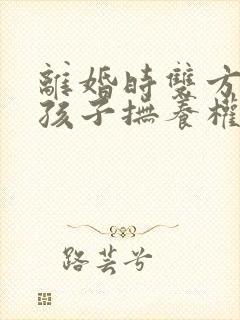 離婚時雙方
孩子撫養權
路芸兮